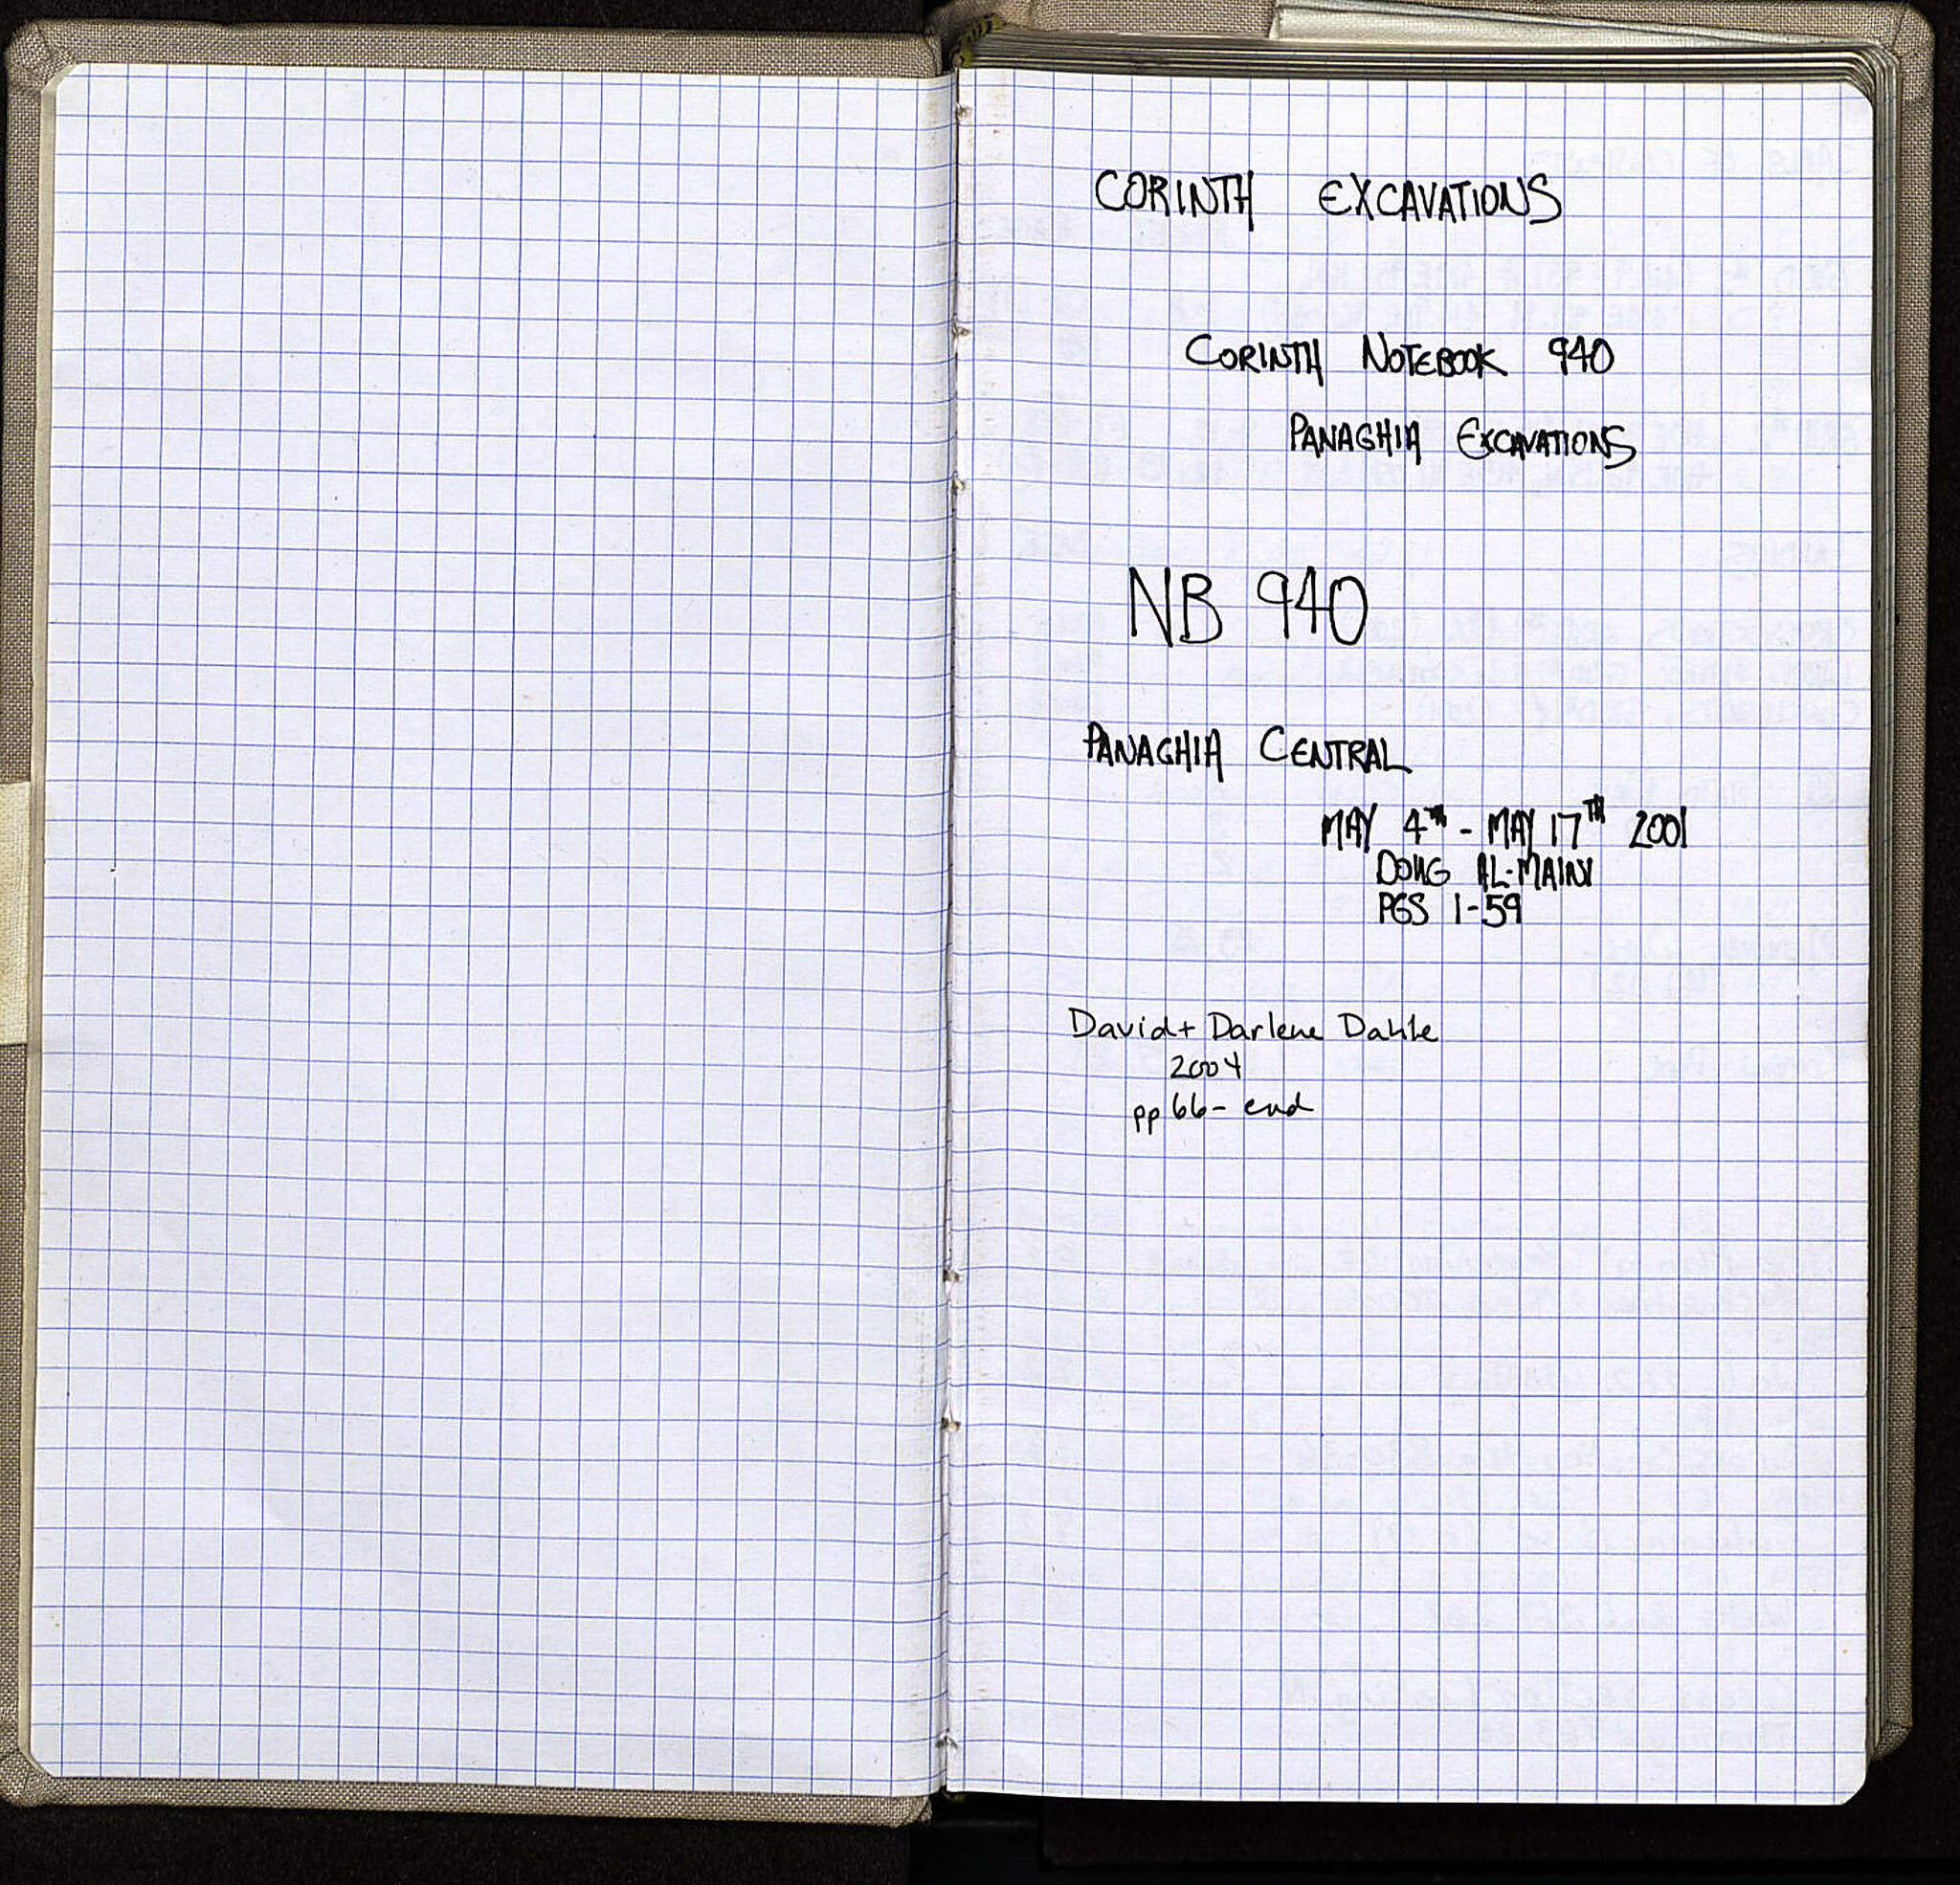 CORINTH EXCAVATIONS
CORINTH NOTEBOOK 940
PANAGHIA EXCAVATIONS
NB 940
PANAGHIA CENTRAL
MAY 4TH - MAY 17TH 2001
DOUG AL-MAINI
PGS 1-59
David + Darlene Dahle
2004
pp 66 - end